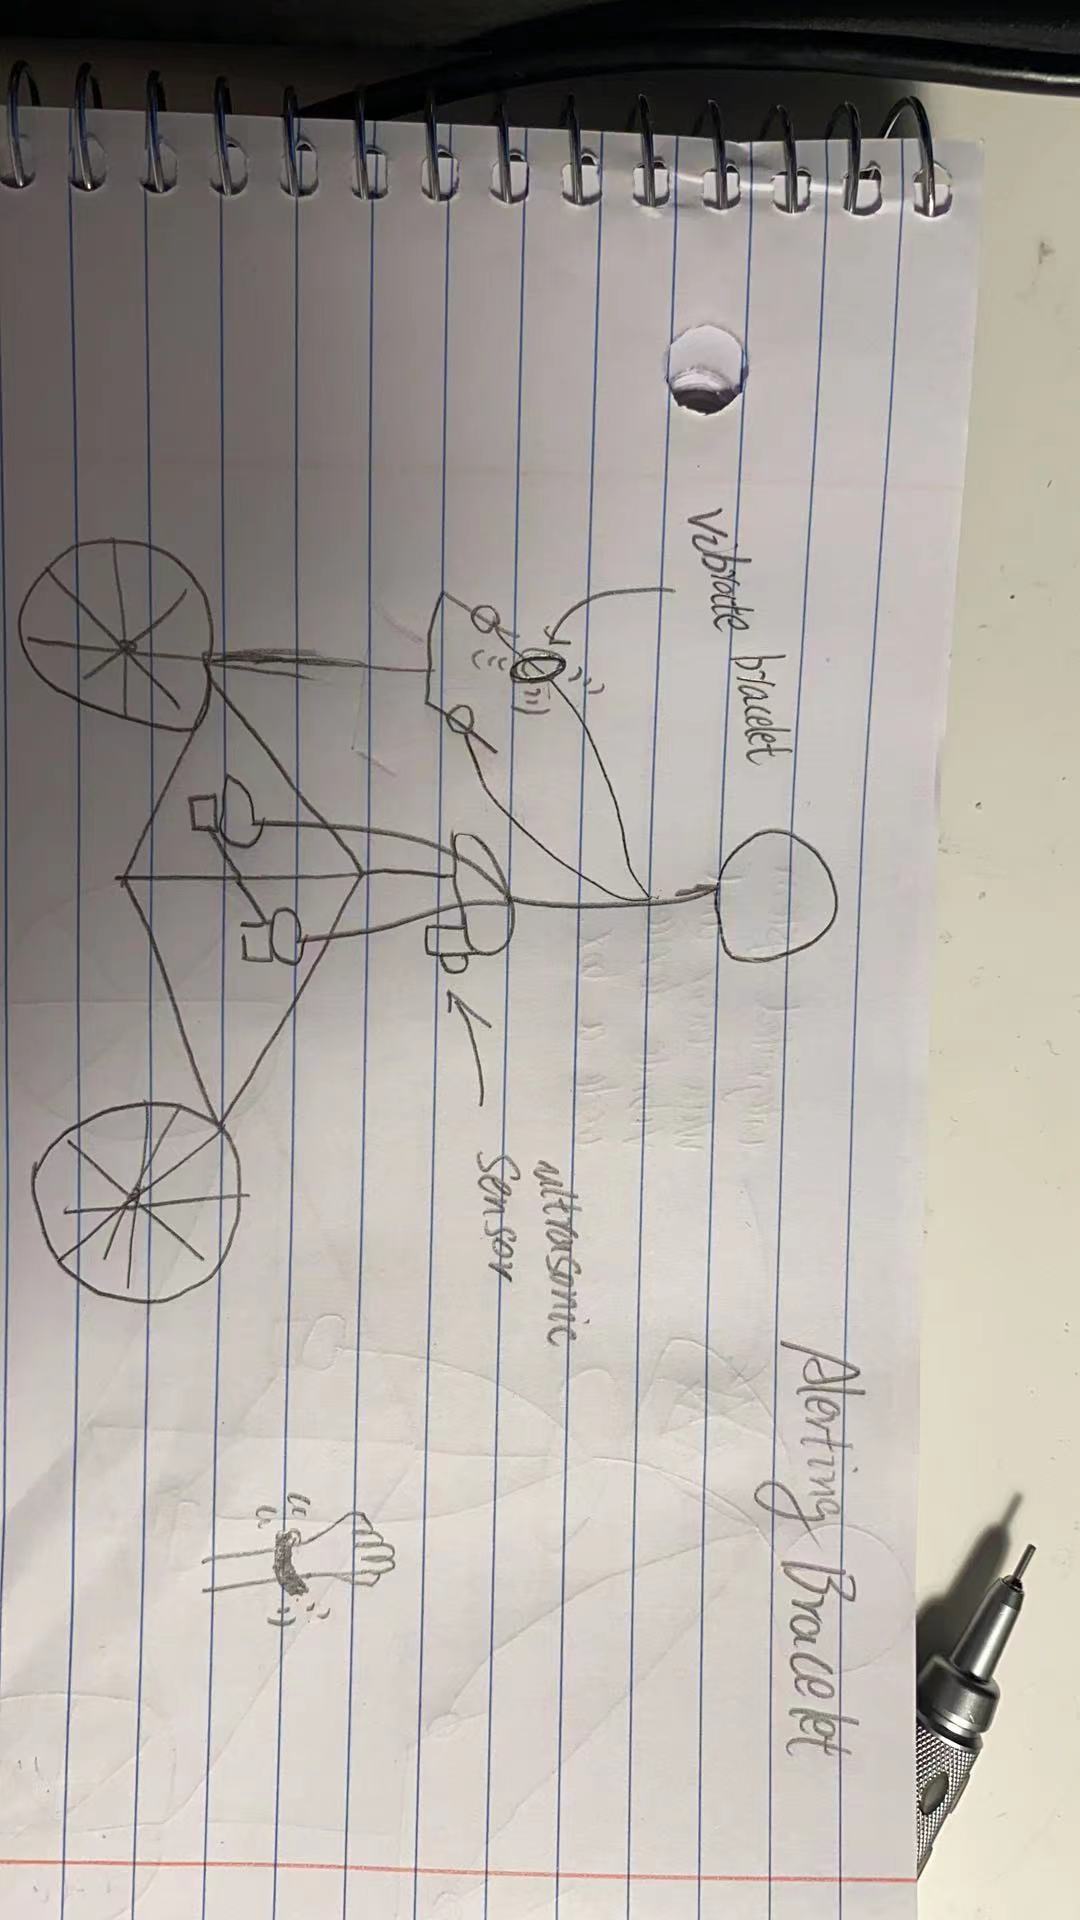 Alerting Bracelet
Vibrate bracelet
ultrasonic
sensor